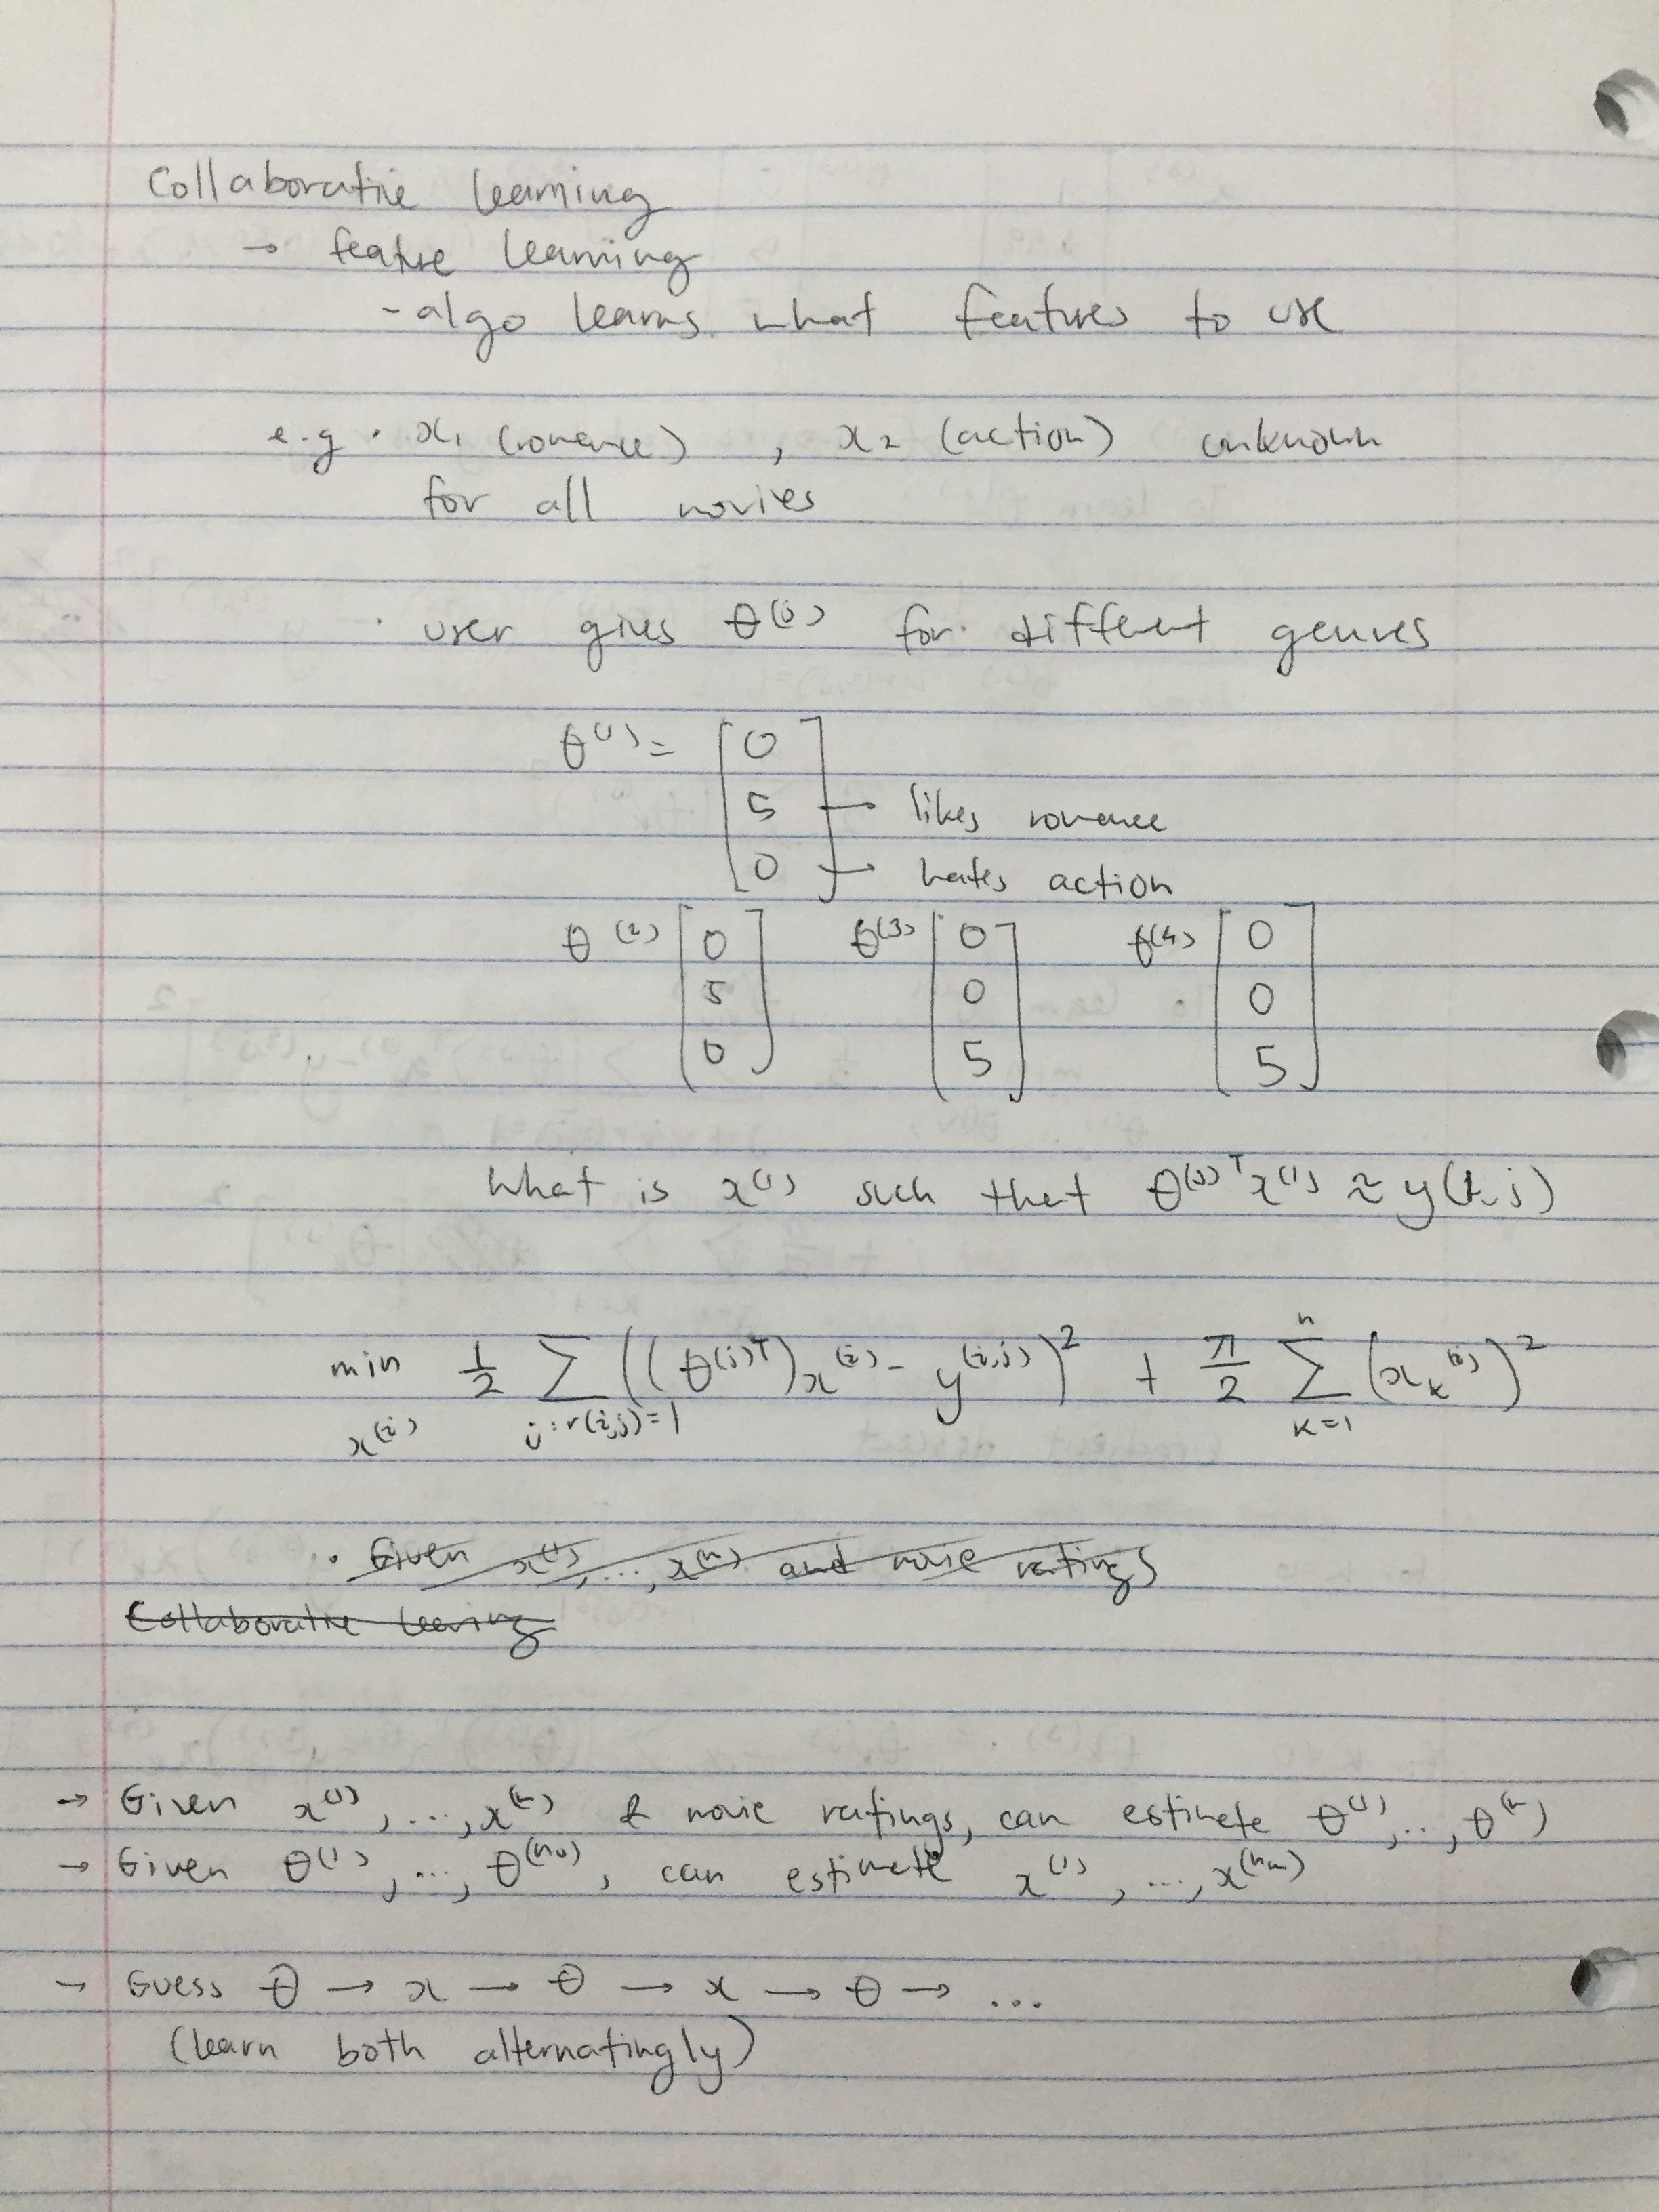 Collaborative learning
→ feature learning
- algo learns what features to use
e.g. x₁ (romance), x₂ (action) unknown
for all movies
· user gives θ^(j) for different genres
θ^(1) = [0
5 → likes romance
0] → hates action
θ^(2) [0 5 0] θ^(3) [0 0 5] θ^(4) [0 0 5]
What is x^(1) such that θ^(j)ᵀ x^(1) ≈ y(1,j)
min_{x^(i)} 1/2 Σ_{j:r(i,j)=1} ((θ^(j)ᵀ)x^(i) - y^(i,j))² + λ/2 Σ_{k=1}^{n} (x_k^(i))²
· Given x^(1), ..., x^(n) and movie ratings
Collaborative learning
→ Given x^(1), ..., x^(n) & movie ratings, can estimate θ^(1), ..., θ^(n)
→ Given θ^(1), ..., θ^(nᵤ), can estimate x^(1), ..., x^(nₘ)
→ Guess θ → x → θ → x → θ → ...
(learn both alternatingly)